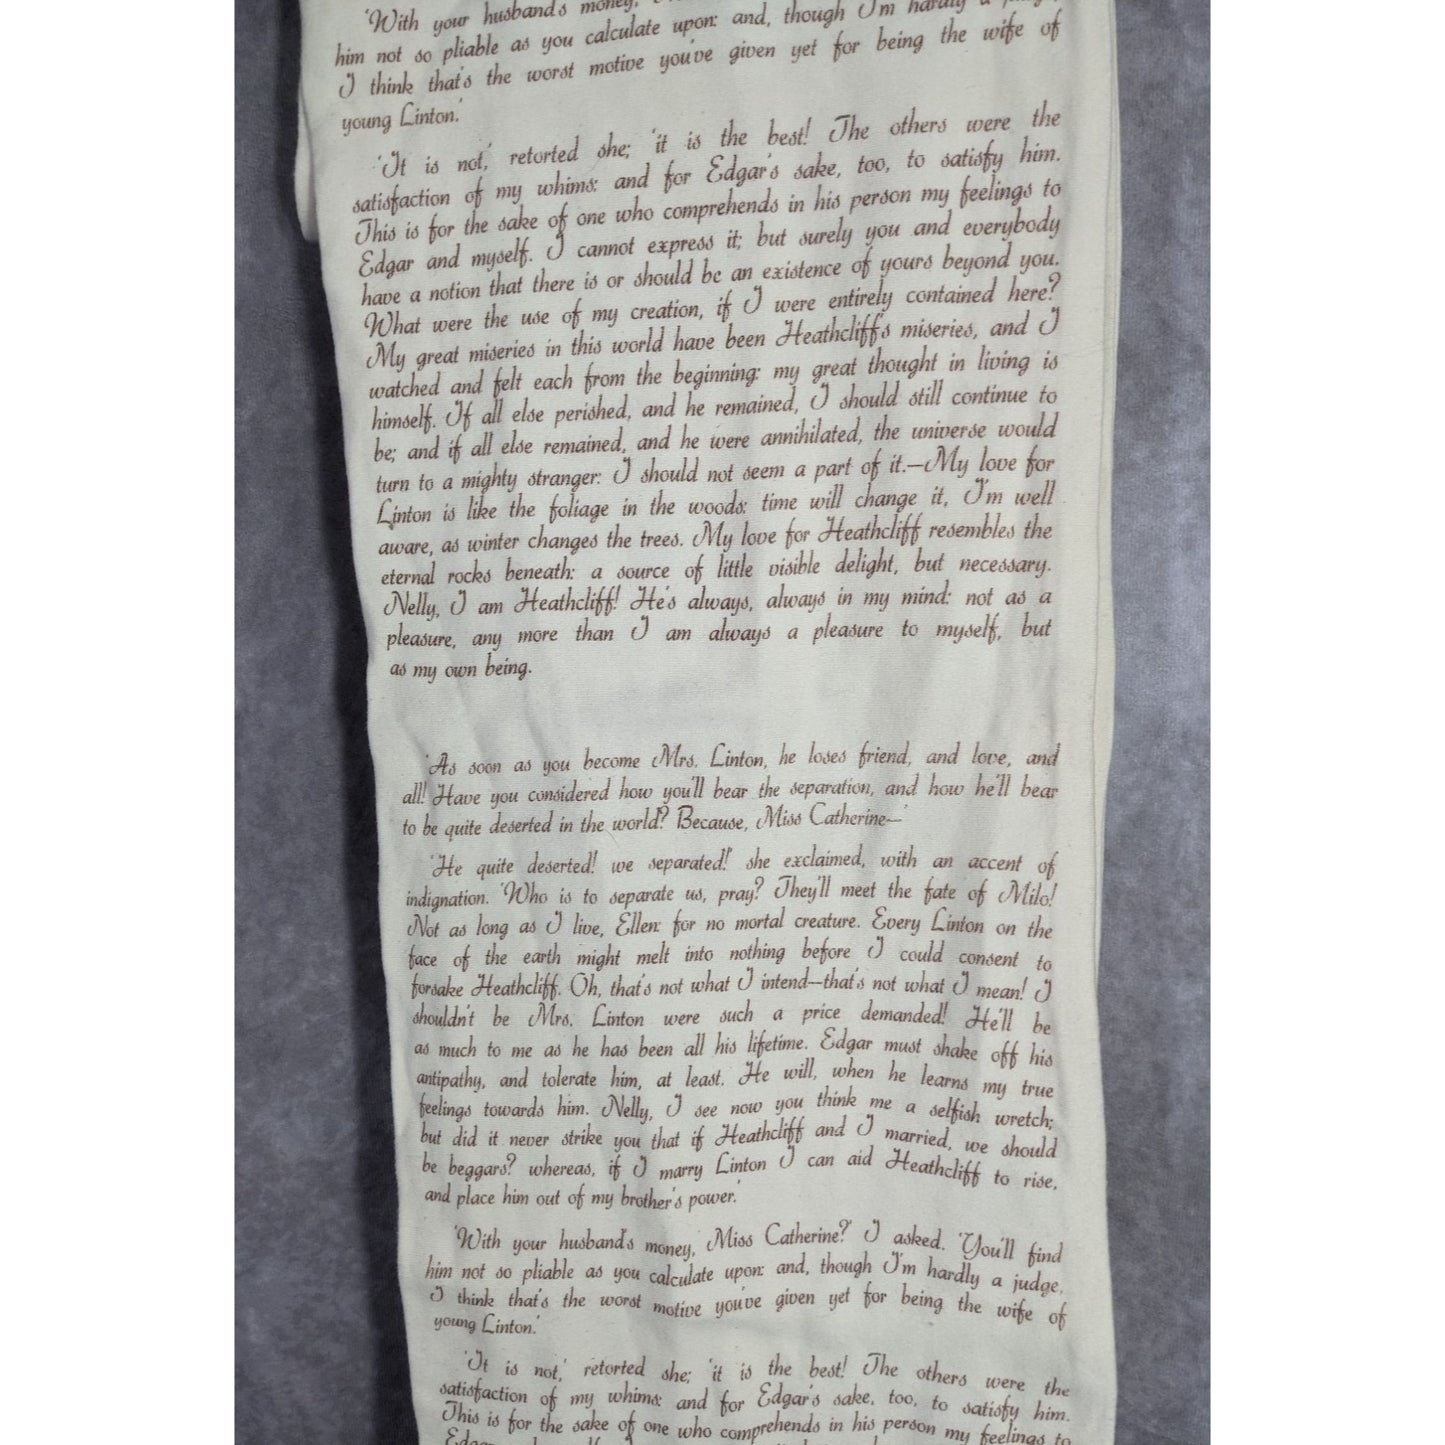 'With your husband's money,
him not so pliable as you calculate upon: and, though I'm hardly a
I think that's the worst motive you've given yet for being the wife of
young Linton.'
'It is not,' retorted she; 'it is the best! The others were the
satisfaction of my whims: and for Edgar's sake, too, to satisfy him.
This is for the sake of one who comprehends in his person my feelings to
Edgar and myself. I cannot express it; but surely you and everybody
have a notion that there is or should be an existence of yours beyond you.
What were the use of my creation, if I were entirely contained here?
My great miseries in this world have been Heathcliff's miseries, and I
watched and felt each from the beginning: my great thought in living is
himself. If all else perished, and he remained, I should still continue to
be; and if all else remained, and he were annihilated, the universe would
turn to a mighty stranger: I should not seem a part of it.—My love for
Linton is like the foliage in the woods: time will change it, I'm well
aware, as winter changes the trees. My love for Heathcliff resembles the
eternal rocks beneath: a source of little visible delight, but necessary.
Nelly, I am Heathcliff! He's always, always in my mind: not as a
pleasure, any more than I am always a pleasure to myself, but
as my own being.
'As soon as you become Mrs. Linton, he loses friend, and love, and
all! Have you considered how you'll bear the separation, and how he'll bear
to be quite deserted in the world? Because, Miss Catherine—'
'He quite deserted! we separated!' she exclaimed, with an accent of
indignation. 'Who is to separate us, pray? They'll meet the fate of Milo!
Not as long as I live, Ellen: for no mortal creature. Every Linton on the
face of the earth might melt into nothing before I could consent to
forsake Heathcliff. Oh, that's not what I intend—that's not what I mean! I
shouldn't be Mrs. Linton were such a price demanded! He'll be
as much to me as he has been all his lifetime. Edgar must shake off his
antipathy, and tolerate him, at least. He will, when he learns my true
feelings towards him. Nelly, I see now you think me a selfish wretch;
but did it never strike you that if Heathcliff and I married, we should
be beggars? whereas, if I marry Linton I can aid Heathcliff to rise,
and place him out of my brother's power.'
'With your husband's money, Miss Catherine?' I asked. 'You'll find
him not so pliable as you calculate upon: and, though I'm hardly a judge,
I think that's the worst motive you've given yet for being the wife of
young Linton.'
'It is not,' retorted she; 'it is the best! The others were the
satisfaction of my whims: and for Edgar's sake, too, to satisfy him.
This is for the sake of one who comprehends in his person my feelings to